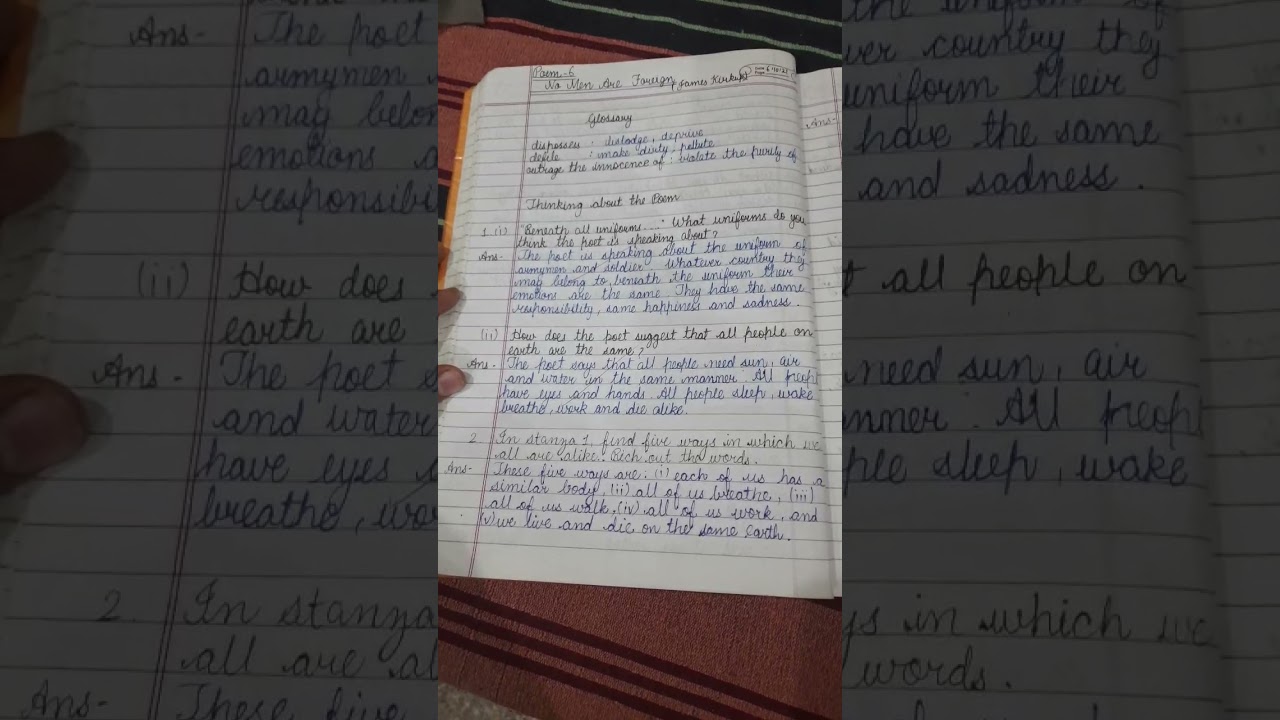 Poem-6
No Men Are Foreign, James Kirkup
Glossary
dispossess : dislodge, deprive
defile : make dirty, pollute
outrage the innocence of : violate the purity of
Thinking about the Poem
1. (i) "Beneath all uniforms....." What uniforms do you
think the poet is speaking about?
Ans- The poet is speaking about the uniform of
armymen and soldier. Whatever country they
may belong to, beneath the uniform their
emotions are the same. They have the same
responsibility, same happiness and sadness.
(ii) How does the poet suggest that all people on
earth are the same?
Ans- The poet says that all people need sun, air
and water in the same manner. All peopl
have eyes and hands. All people sleep, wake
breathe, work and die alike.
2. In stanza 1, find five ways in which we
all are alike. Pick out the words.
Ans- These five ways are: (i) each of us has a
similar body, (ii) all of us breathe, (iii)
all of us walk, (iv) all of us work, and
(v) we live and die on the same Earth.
Ans-